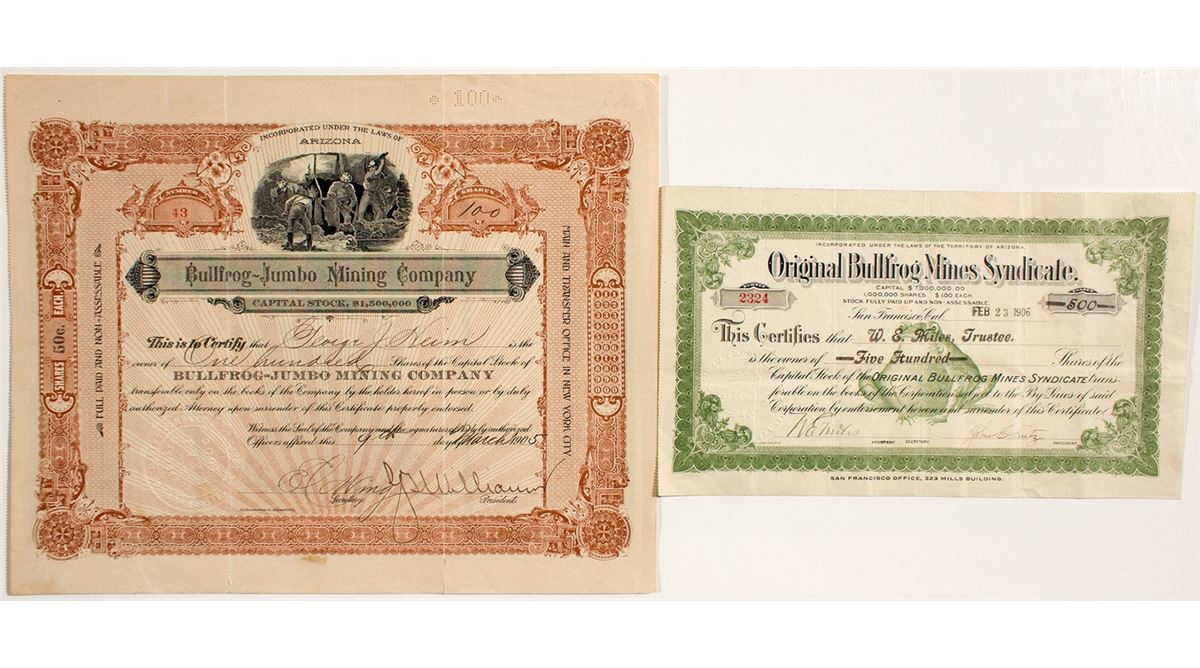 100
INCORPORATED UNDER THE LAWS OF
ARIZONA
NUMBER
43
SHARES
100
Bullfrog-Jumbo Mining Company
CAPITAL STOCK, $1,500,000
SHARES 50c. EACH
FULL PAID AND NON-ASSESSABLE
MAIN AND TRANSFER OFFICE IN NEW YORK CITY
This is to Certify that George J. is the
owner of One hundred Shares of the Capital Stock of
BULLFROG-JUMBO MINING COMPANY
transferable only on the books of the Company by the holder hereof in person or by duly
authorized Attorney upon surrender of this Certificate properly endorsed.
Witness the Seal of the Company and the signatures of its duly authorized
Officers affixed this 9th day of March 1905
J. Williams
Secretary. President.
INCORPORATED UNDER THE LAWS OF THE TERRITORY OF ARIZONA.
Original Bullfrog Mines Syndicate.
2324
CAPITAL $1,000,000.00
1,000,000 SHARES $1.00 EACH
STOCK FULLY PAID UP AND NON-ASSESSABLE.
500
San Francisco, Cal. FEB 23 1906
This Certifies that W. E. Miles, Trustee.
is the owner of Five Hundred Shares of the
Capital Stock of the ORIGINAL BULLFROG MINES SYNDICATE trans-
ferable on the books of the Corporation subject to the By Laws of said
Corporation by endorsement hereon and surrender of this Certificate.
W E Miles
ASSISTANT SECRETARY. PRESIDENT.
SAN FRANCISCO OFFICE, 323 MILLS BUILDING.